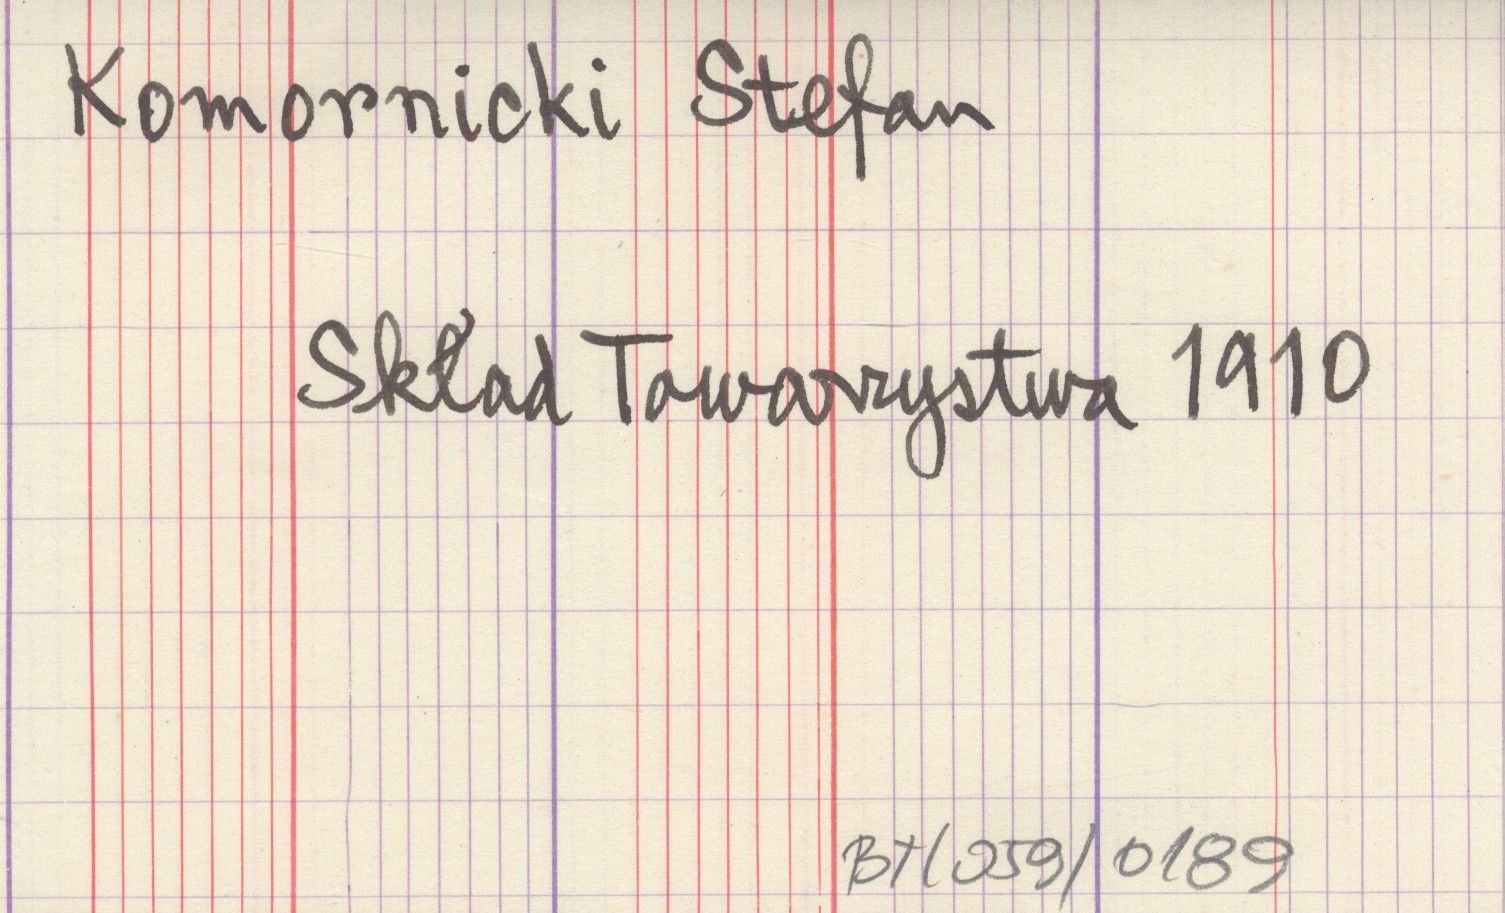 Komornicki Stefan
Skład Towarzystwa 1910
BT/059/0189